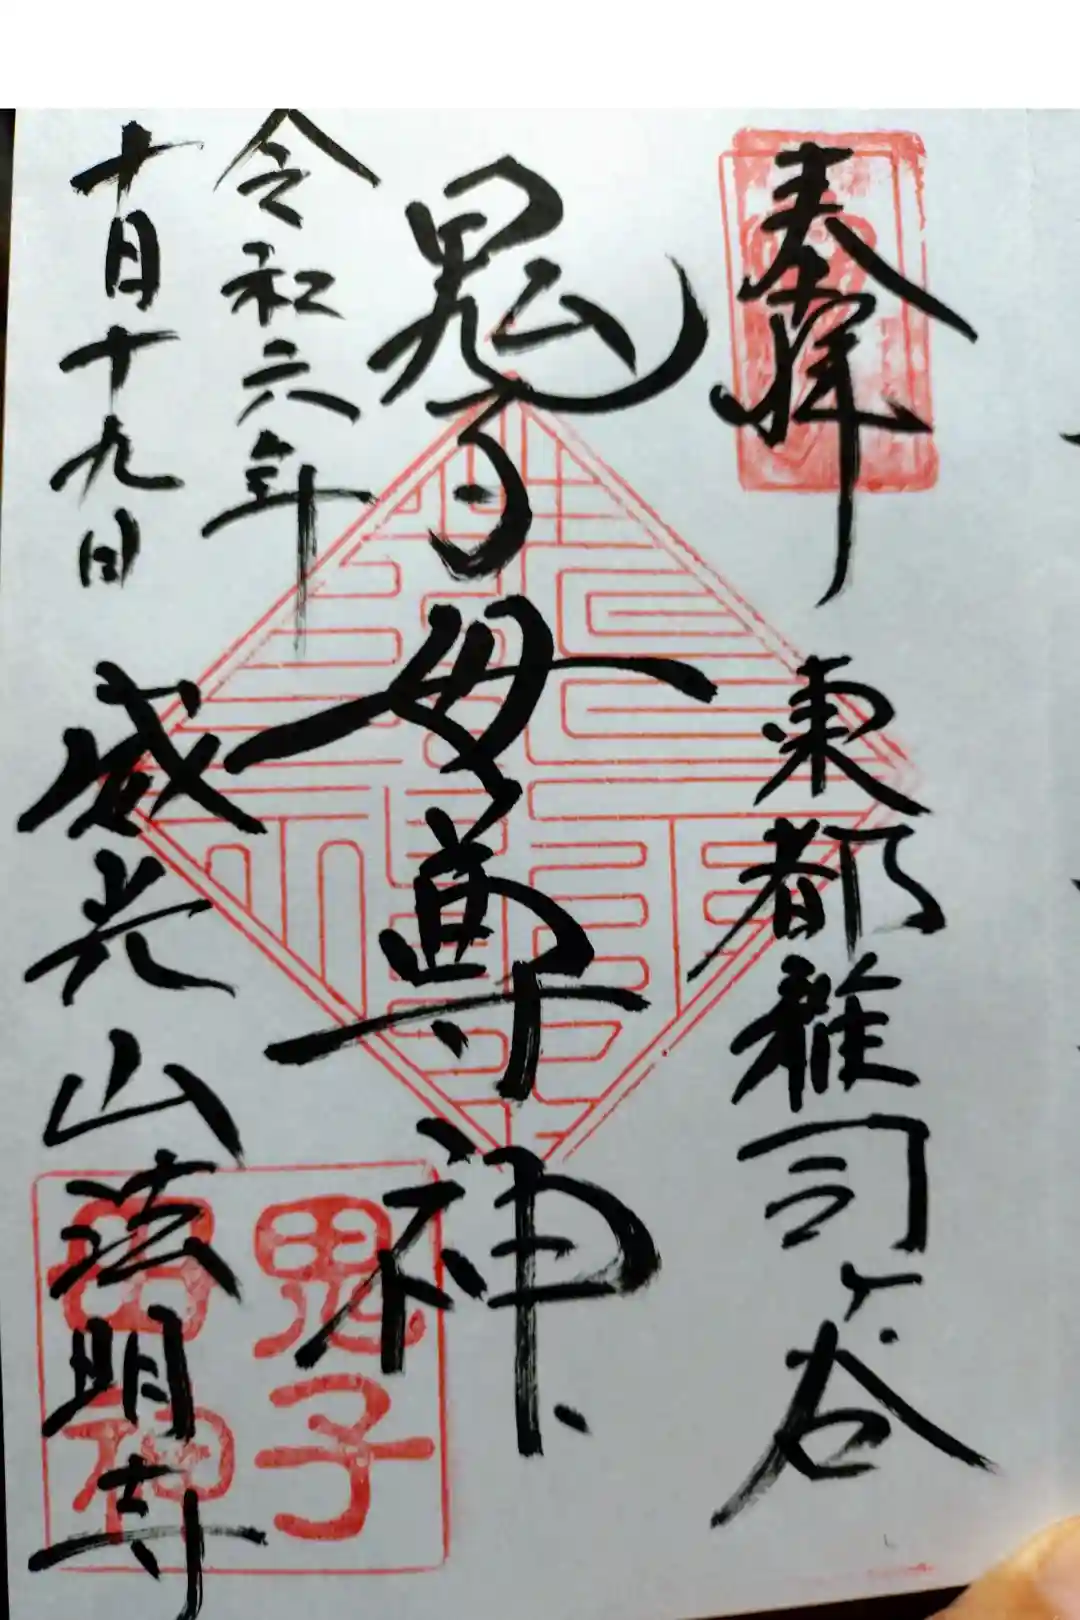 奉拝
東都雑司ヶ谷
鬼子母尊神
令和六年
十月十九日
威光山法明寺
鬼子
母神